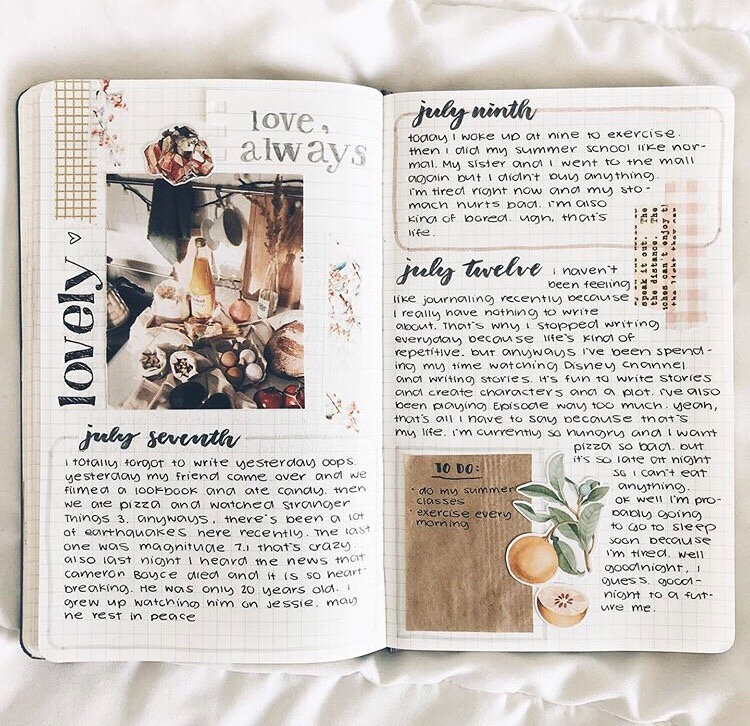 love,
always
lovely
july seventh
i totally forgot to write yesterday oops.
yesterday my friend came over and we
filmed a lookbook and ate candy. then
we ate pizza and watched Stranger
Things 3. anyways, there's been a lot
of earthquakes here recently. The last
one was magnitude 7.1 that's crazy.
also last night i heard the news that
cameron Boyce died and it is so heart-
breaking. He was only 20 years old. i
grew up watching him on Jessie. may
he rest in peace
july ninth
today i woke up at nine to exercise.
then i did my summer school like nor-
mal. My sister and i went to the mall
again but i didn't buy anything.
i'm tired right now and my sto-
mach hurts bad. i'm also
kind of bored. ugh, that's
life.
speak it out. The
the distance. The
ches can't enjoy t
july twelve
i haven't
been feeling
like journaling recently because
i really have nothing to write
about. That's why i stopped writing
everyday because life's kind of
repetitive. but anyways i've been spend-
ing my time watching Disney Channel
and writing stories. it's fun to write stories
and create characters and a plot. i've also
been playing Episode way too much. yeah,
that's all i have to say because that's
my life. i'm currently so hungry and i want
pizza so bad. but
it's so late at night
so i can't eat
anything.
ok well i'm pro-
bably going
to go to sleep
soon because
i'm tired. well
goodnight, i
guess. good-
night to a fut-
ure me.
TO DO:
· do my summer
classes
· exercise every
morning